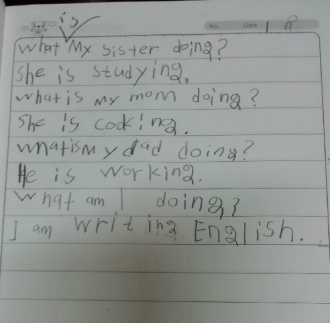 is
No. Date 1 9
What My sister doing?
She is studying.
What is my mom doing?
She is cooking.
what is my dad doing?
He is working.
What am I doing?
I am writing English.